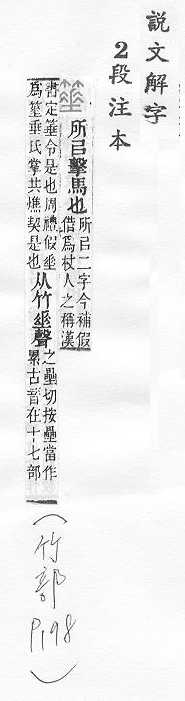 說文解字
2段注本
箠 所㠯擊馬也 所㠯二字今補假
借爲杖人之稱漢
書定箠令是也周禮假垂
爲箠垂氏掌共燋契是也
从竹垂聲 之壘切按壘當作
累古音在十七部
(竹部 P198)